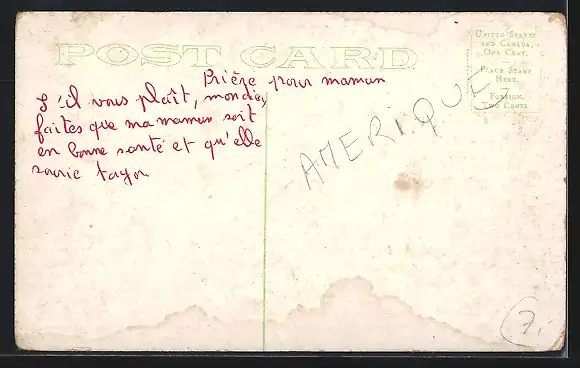 POST CARD
UNITED STATES
AND CANADA,
ONE CENT.
PLACE STAMP
HERE.
FOREIGN,
TWO CENTS
Prière pour maman
S'il vous plaît, mon dieu,
faites que ma maman soit
en bonne santé et qu'elle
sourie
AMERIQUE
7.